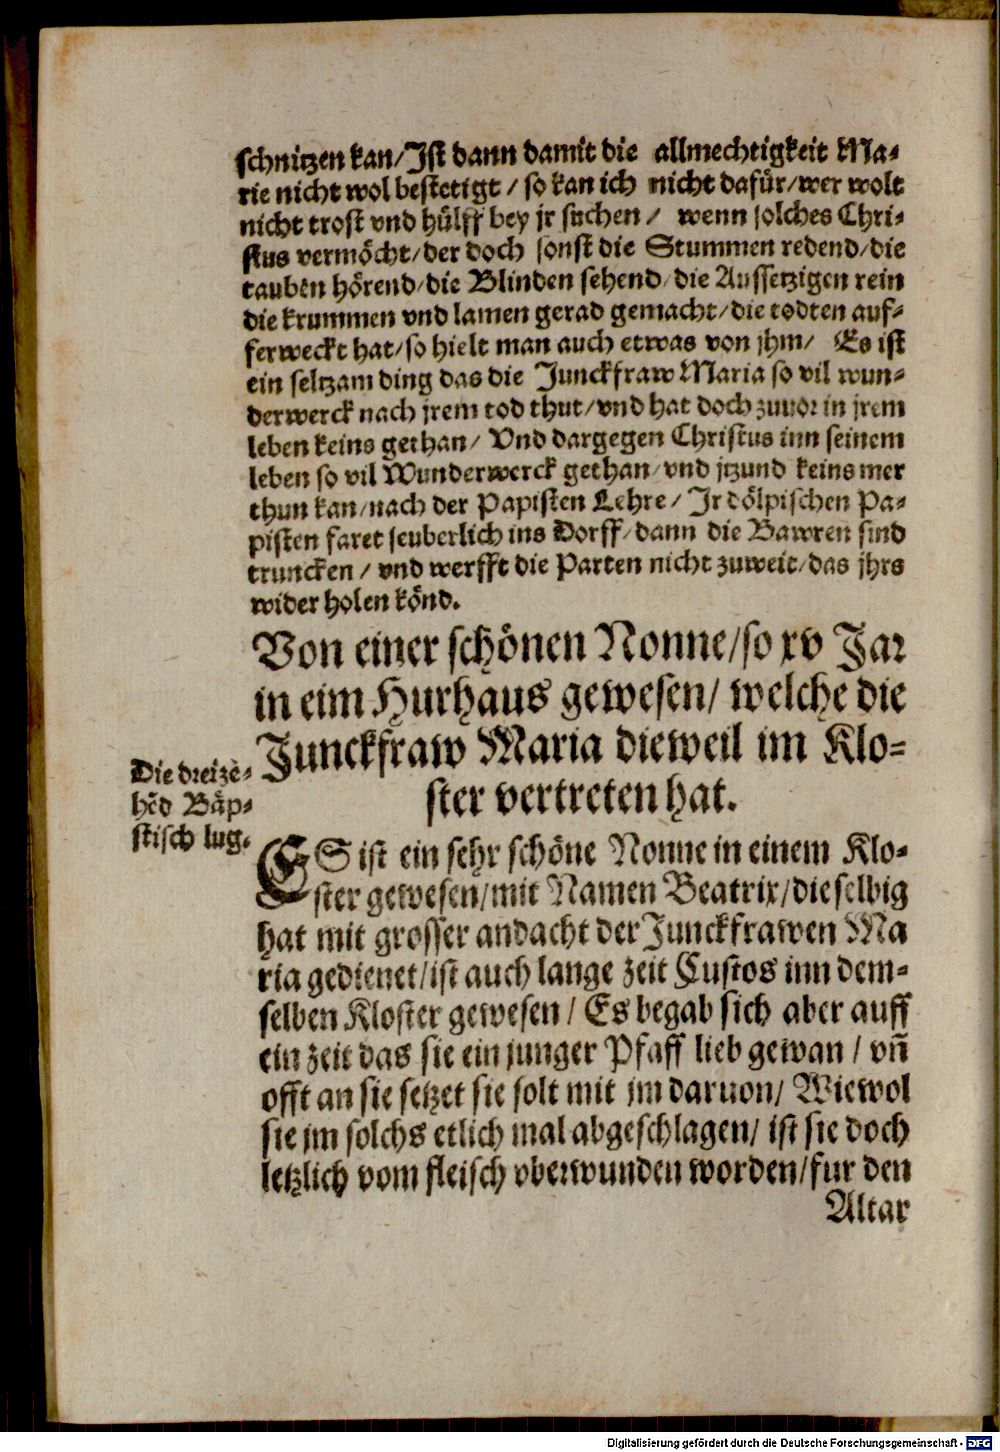 schnitzen kan/Ist dann damit die allmechtigkeit Ma-
rie nicht wol bestetigt / so kan ich nicht dafür/wer wolt
nicht trost vnd hülff bey jr suchen / wenn solches Chri-
stus vermöcht/der doch sonst die Stummen redend/die
tauben hörend/die Blinden sehend/die Aussetzigen rein
die krummen vnd lamen gerad gemacht/die todten auf-
ferweckt hat/so hielt man auch etwas von jhm/ Es ist
ein seltzam ding das die Junckfraw Maria so vil wun-
derwerck nach jrem tod thut/vnd hat doch zuuor in jrem
leben keins gethan/ Vnd dargegen Christus inn seinem
leben so vil Wunderwerck gethan/vnd jtzund keins mer
thun kan/nach der Papisten Lehre/ Ir dölpischen Pa-
pisten faret seuberlich ins Dorff/dann die Bawren sind
truncken / vnd werfft die Parten nicht zuweit/das jhrs
wider holen könd.
Von einer schönen Nonne/so xv Jar
in eim Hurhaus gewesen/ welche die
Junckfraw Maria dieweil im Klo-
ster vertreten hat.
Die dreizē-
hēd Bäp-
stisch lug.
ES ist ein sehr schöne Nonne in einem Klo-
ster gewesen/mit Namen Beatrix/die selbig
hat mit grosser andacht der Junckfrawen Ma
ria gedienet/ist auch lange zeit Custos inn dem-
selben Kloster gewesen / Es begab sich aber auff
ein zeit das sie ein junger Pfaff lieb gewan / vñ
offt an sie setzet sie solt mit jm daruon/ Wiewol
sie jm solchs etlich mal abgeschlagen/ ist sie doch
letzlich vom fleisch vberwunden worden/fur den
Altar
Digitalisierung gefördert durch die Deutsche Forschungsgemeinschaft - DFG